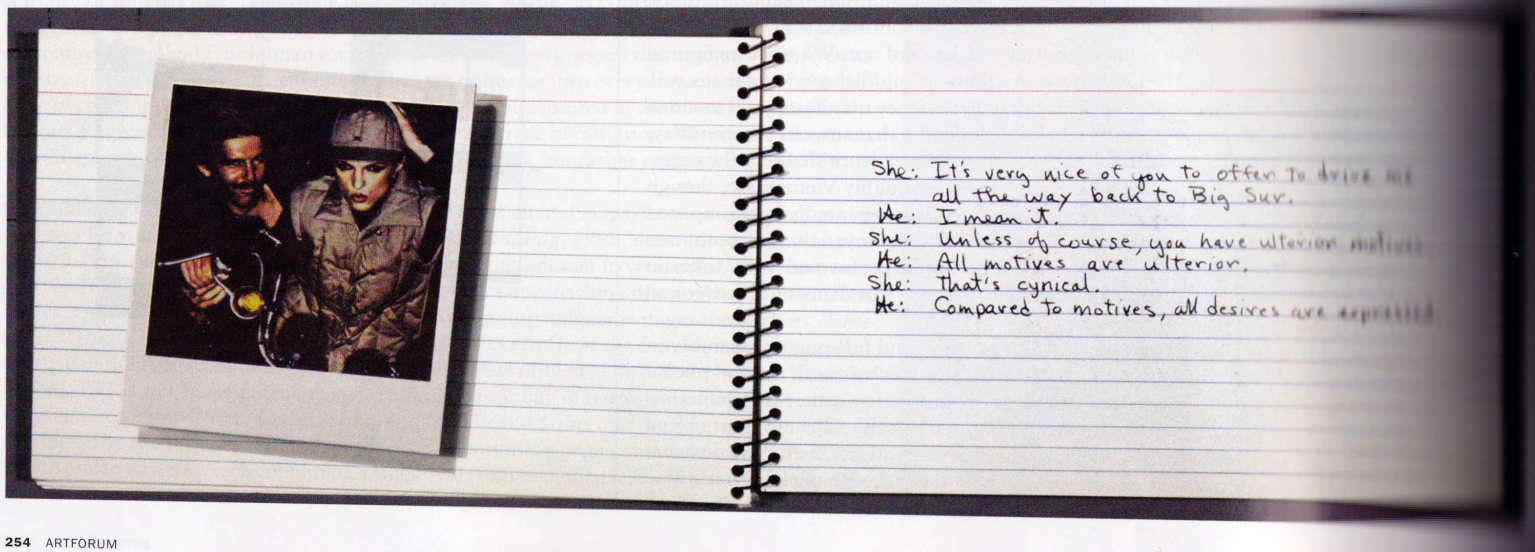 She: It's very nice of you to offer to drive me
all the way back to Big Sur.
He: I mean it.
She: Unless of course, you have ulterior motives.
He: All motives are ulterior.
She: That's cynical.
He: Compared to motives, all desires are expressed
254 ARTFORUM